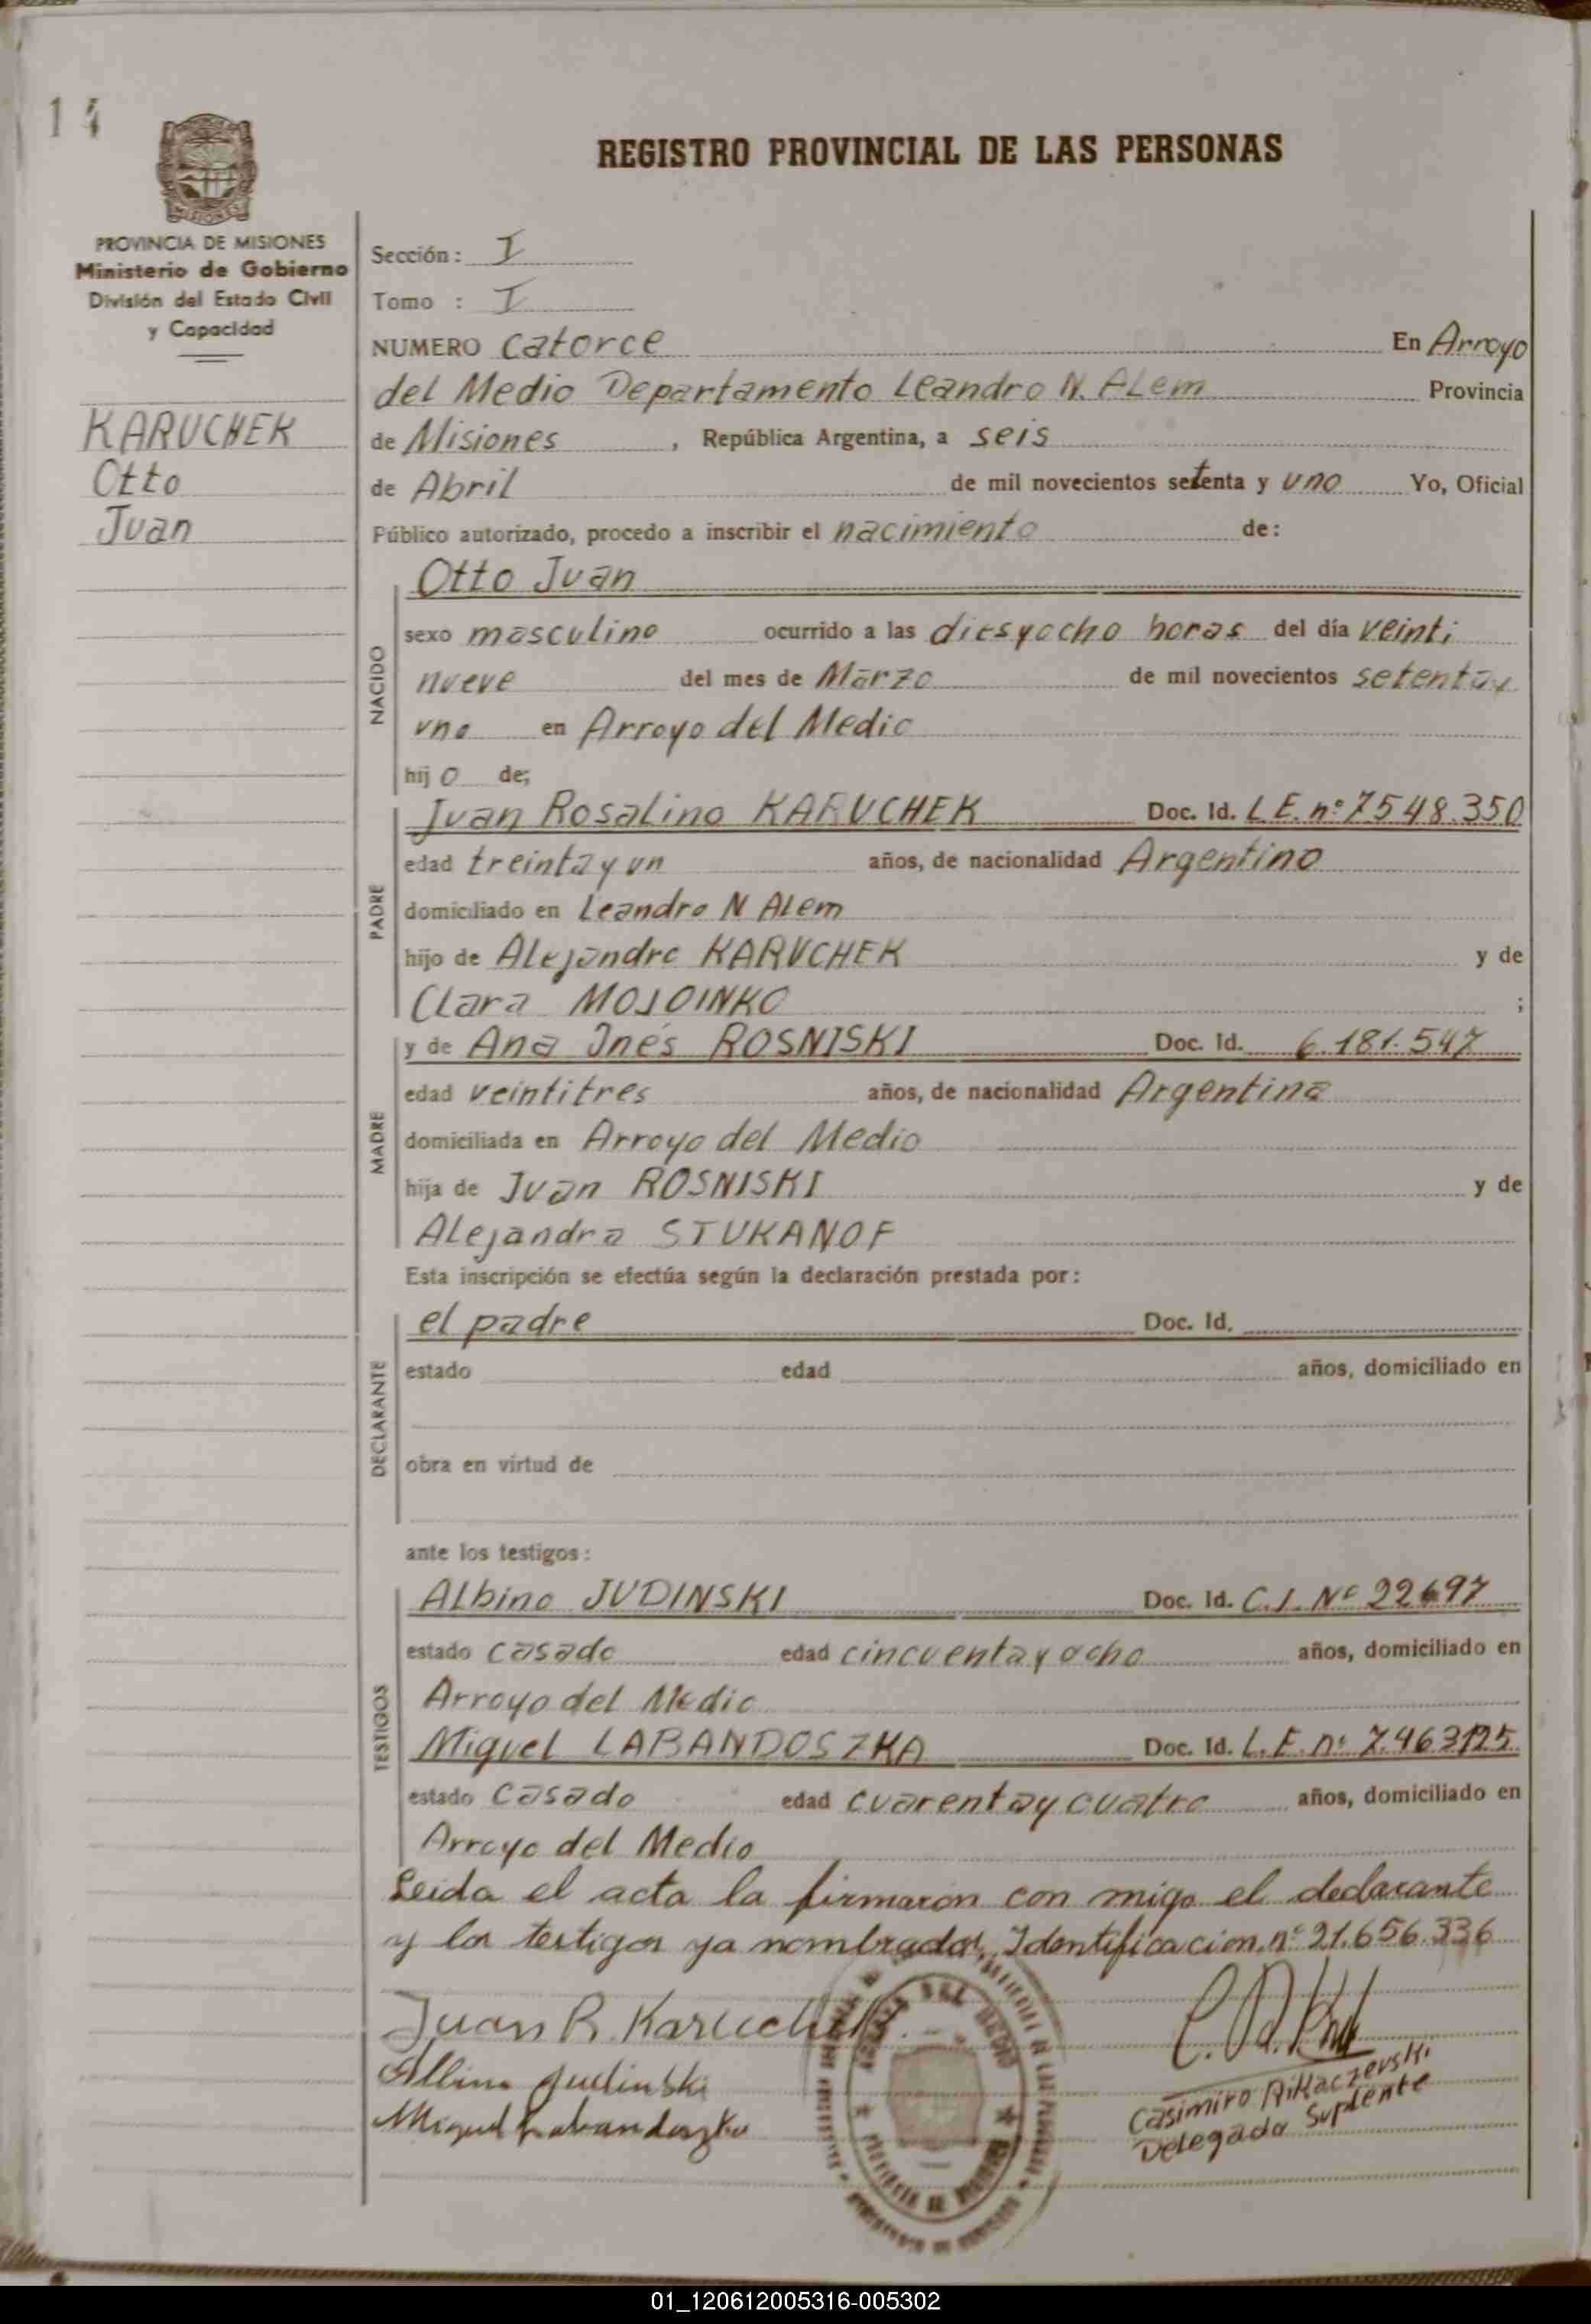 14
PROVINCIA DE MISIONES
Ministerio de Gobierno
División del Estado Civil
y Capacidad
KARUCHEK
Otto
Juan
REGISTRO PROVINCIAL DE LAS PERSONAS
Sección: I
Tomo : I
NUMERO catorce En Arroyo
del Medio Departamento Leandro N. ALem Provincia
de Misiones, República Argentina, a seis
de Abril de mil novecientos setenta y uno Yo, Oficial
Público autorizado, procedo a inscribir el nacimiento de:
Otto Juan
NACIDO
sexo masculino ocurrido a las diesyocho horas del día veinti
nueve del mes de Marzo de mil novecientos setenta y
uno en Arroyo del Medio
hijo de;
PADRE
Juan Rosalino KARUCHEK Doc. Id. L.E. nº 7548.350
edad treinta y un años, de nacionalidad Argentino
domiciliado en Leandro N ALem
hijo de Alejandro KARUCHEK y de
Clara MOJOINKO ;
MADRE
y de Ana Inés ROSNISKI Doc. Id. 6.181.547
edad veintitres años, de nacionalidad Argentina
domiciliada en Arroyo del Medio
hija de Juan ROSNISKI y de
Alejandra STUKANOF
Esta inscripción se efectúa según la declaración prestada por:
DECLARANTE
el padre Doc. Id.
estado edad años, domiciliado en
obra en virtud de
ante los testigos:
TESTIGOS
ALbino JUDINSKI Doc. Id. C.I. Nº 22697
estado casado edad cincuenta y ocho años, domiciliado en
Arroyo del Medio
Miguel LABANDOSZKA Doc. Id. L.E. nº 7.463125
estado casado edad cuarenta y cuatro años, domiciliado en
Arroyo del Medio
Leida el acta la firmaron con migo el declarante
y los testigos ya nombrados. Identificacion. nº 21.656.336
Juan R. Karuchek
Albino Judinski
Miguel Labandoszka
Casimiro Rikaczevski
Delegado Suplente
01_120612005316-005302